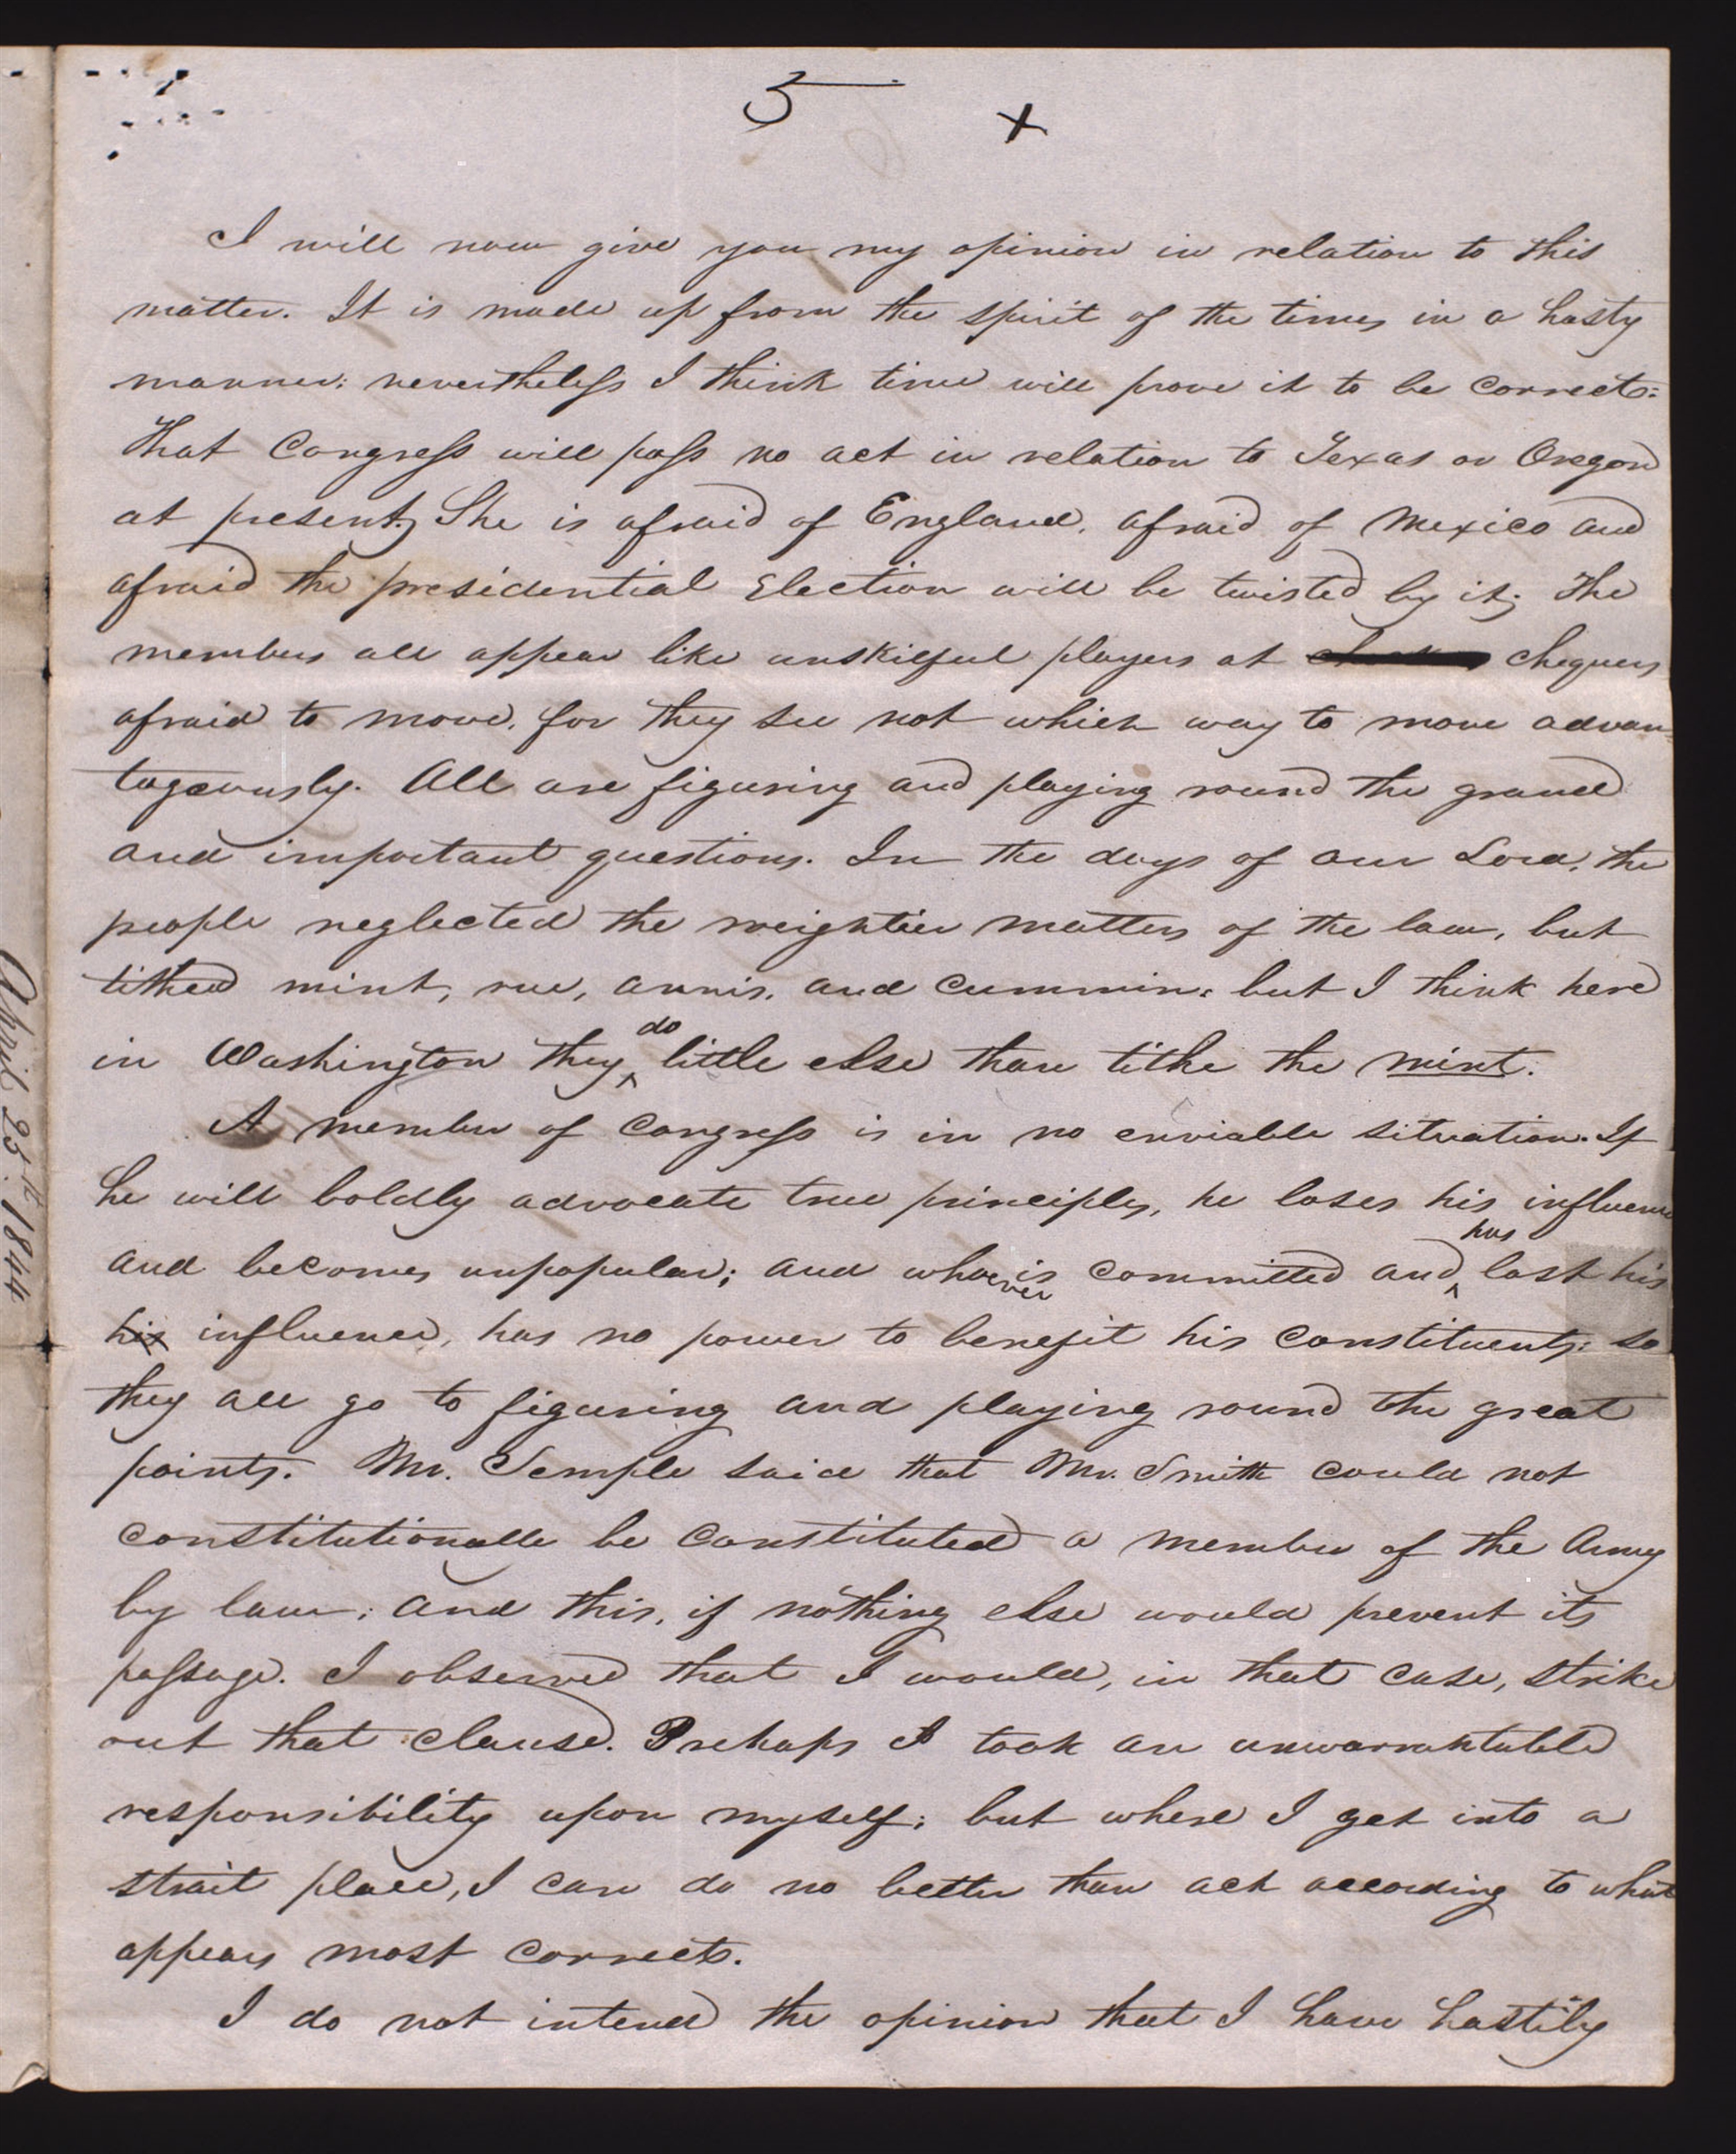 5 +
I will now give you my opinion in relation to this
matter. It is made up from the spirit of the times in a hasty
manner; nevertheless I think time will prove it to be correct:
That Congress will pass no act in relation to Texas or Oregon
at present; She is afraid of England, afraid of Mexico and
afraid the presidential Election will be twisted by it; The
members all appear like unskilful players at chequers
afraid to move, for they see not which way to move advan
tageously. All are figuring and playing round the grand
and important questions. In the days of our Lord, the
people neglected the weightier matters of the law, but
tithed mint, rue, annis, and cummin; but I think here
in Washington they do little else than tithe the mint.
A member of Congress is in no enviable situation. If
he will boldly advocate true principles, he loses his influence
and becomes unpopular; and whoever is committed and has lost his
his influence, has no power to benefit his constituents: so
they all go to figuring and playing round the great
points. Mr. Semple said that Mr. Smith could not
constitutionalle be constituted a member of the Army
by law; and this, if nothing else would prevent its
passage. I observed that I would, in that case, strike
out that clause. Prehaps I took an unwarrantable
responsibility upon myself; but where I get into a
strait place, I can do no better than act according to what
appears most correct.
I do not intend the opinion that I have hastily
April 25th. 1844